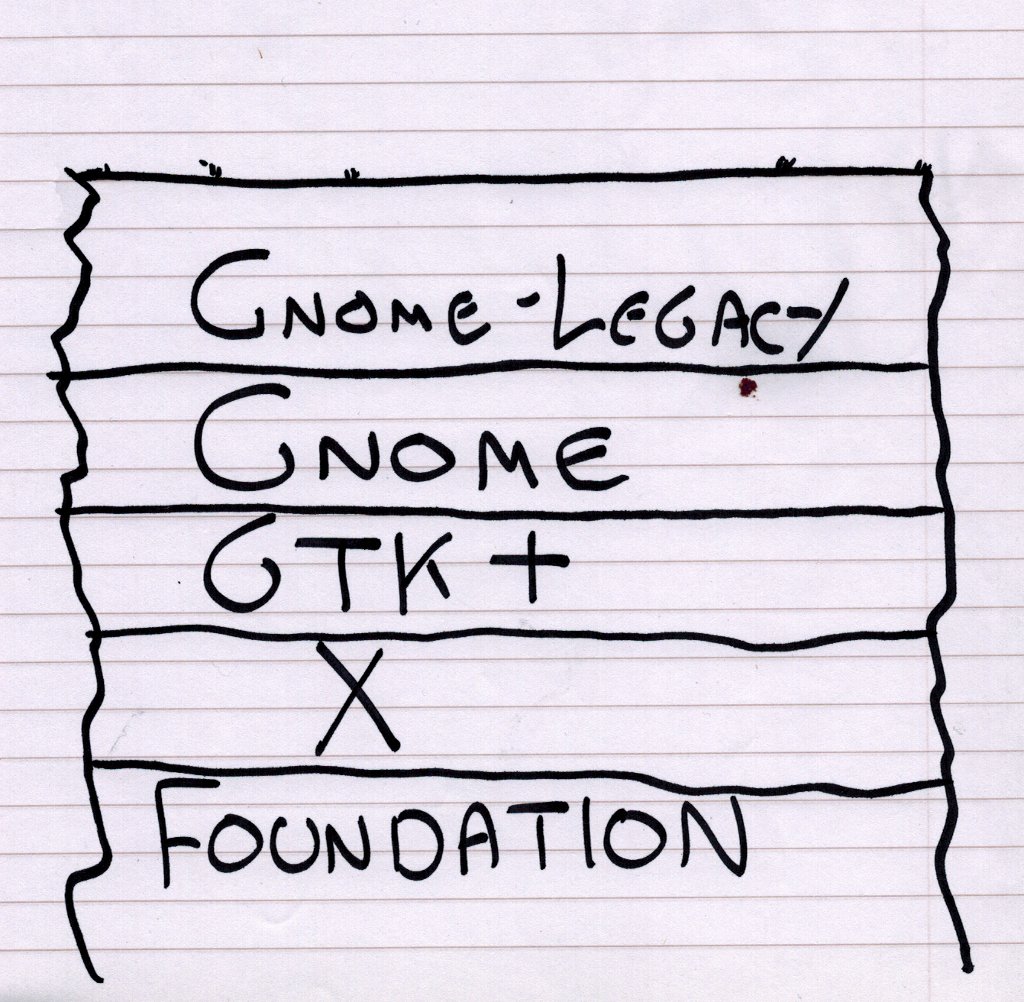 GNOME-LEGACY
GNOME
GTK+
X
FOUNDATION